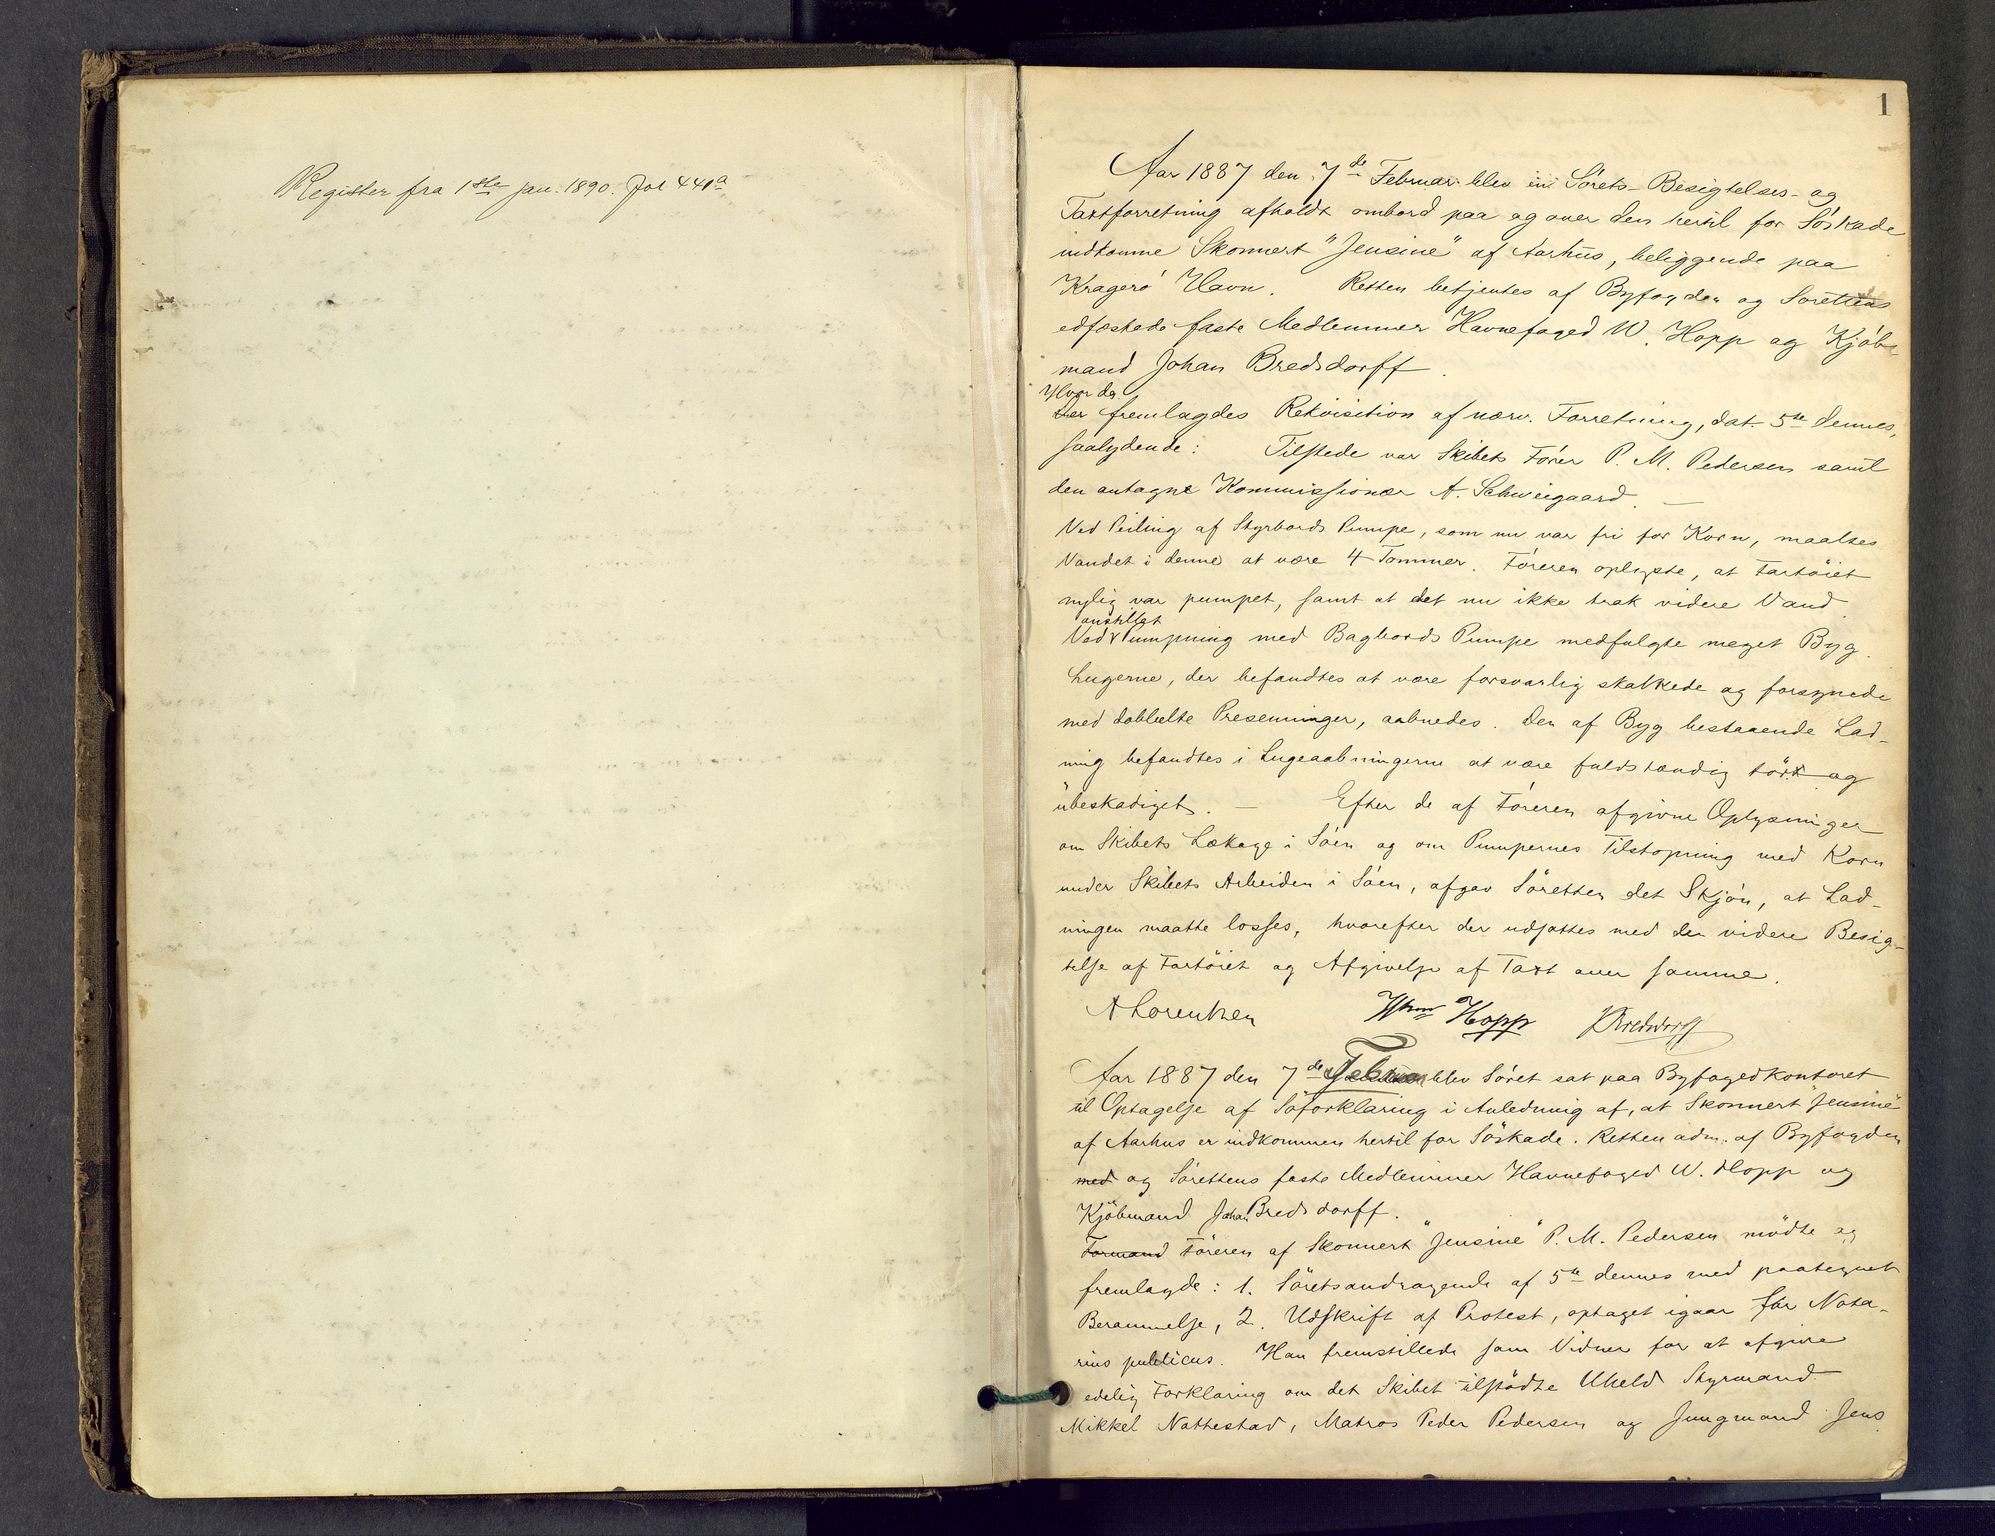 Register fra 1ste jan. 1890. Fol 441a
1
Aar 1887 den 7de Februar blev en Sørets- Besigtelses- og
Taxtforretning afholdt ombord paa og over den hertil for Søskade
indkomne Skonnert "Jensine" af Aarhus, beliggende paa
Kragerø Havn. Retten betjentes af Byfogden og Sørettens
edfæstede faste Medlemmer Havnefoged W. Hopp og Kjøb-
mand Johan Bredsdorff.
Hvor da
Der fremlagdes Rekvisition af nærv. Forretning, dat. 5te dennes,
saalydende: Tilstede var Skibets Fører P. M. Pedersen samt
den antagne Kommissionær A. Schweigaard. —
Ved Peiling af Styrbords Pumpe, som nu var fri for Korn, maaltes
Vandet i denne at være 4 Tommer. Føreren oplyste, at Fartøiet
nylig var pumpet, samt at det nu ikke trak videre Vand
anstillet
Ved Pumpning med Bagbords Pumpe medfulgte meget Byg.
Lugerne, der befandtes at være forsvarlig skalkede og forsynede
med dobbelte Presenninger, aabnedes. Den af Byg bestaaende Lad-
ning befandtes i Lugeaabningerne at være fuldstændig tør og
ubeskadiget. — Efter de af Føreren afgivne Oplysninger
om Skibets Lækage i Søen og om Pumpernes Tilstopning med Korn
under Skibets Arbeiden i Søen, afgav Søretten det Skjøn, at Lad-
ningen maatte losses, hvorefter der udsattes med den videre Besig-
telse af Fartøiet og Afgivelse af Taxt over samme.
A Lorentzen Whm Hopp J Bredsdorff
Aar 1887 den 7de Februar blev Søret sat paa Byfogedkontoret
til Optagelse af Søforklaring i Anledning af, at Skonnert "Jensine"
af Aarhus er indkommen hertil for Søskade. Retten adm. af Byfogden
med og Sørettens faste Medlemmer Havnefoged W. Hopp og
Kjøbmand Johan Bredsdorff.
Formand Føreren af Skonnert "Jensine" P. M. Pedersen mødte og
fremlagde: 1. Søretsandragende af 5te dennes med paategnet
Berammelse, 2. Udskrift af Protest, optaget igaar for Nota-
rius publicus. Han fremstillede som Vidner for at afgive
edelig Forklaring om det Skibet tilstødte Uheld Styrmand
Mikkel Nattestad, Matros Peder Pedersen og Jungmand Jens